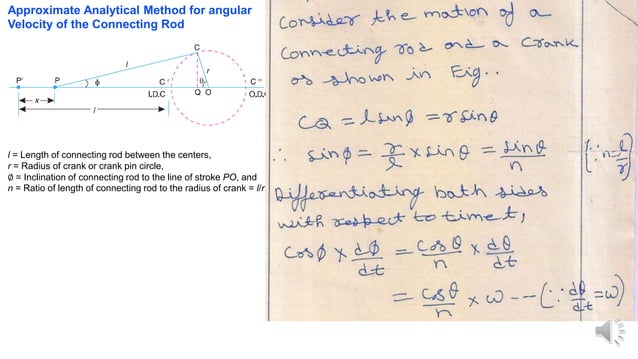 Approximate Analytical Method for angular
Velocity of the Connecting Rod
C
l
r
P'
P
ϕ
C'
θ
C''
I.D.C
Q O
O.D.
x
l
l = Length of connecting rod between the centers,
r = Radius of crank or crank pin circle,
∅ = Inclination of connecting rod to the line of stroke PO, and
n = Ratio of length of connecting rod to the radius of crank = l/r
Consider the motion of a
Connecting rod and a Crank
as shown in Fig..
CQ = l sin∅ = r sinθ
∴ sin∅ = r/l × sinθ = sinθ/n {∵ n = l/r}
Differentiating both sides
with respect to time t,
Cos∅ × d∅/dt = Cosθ/n × dθ/dt
= Cosθ/n × ω -- (∵ dθ/dt = ω)